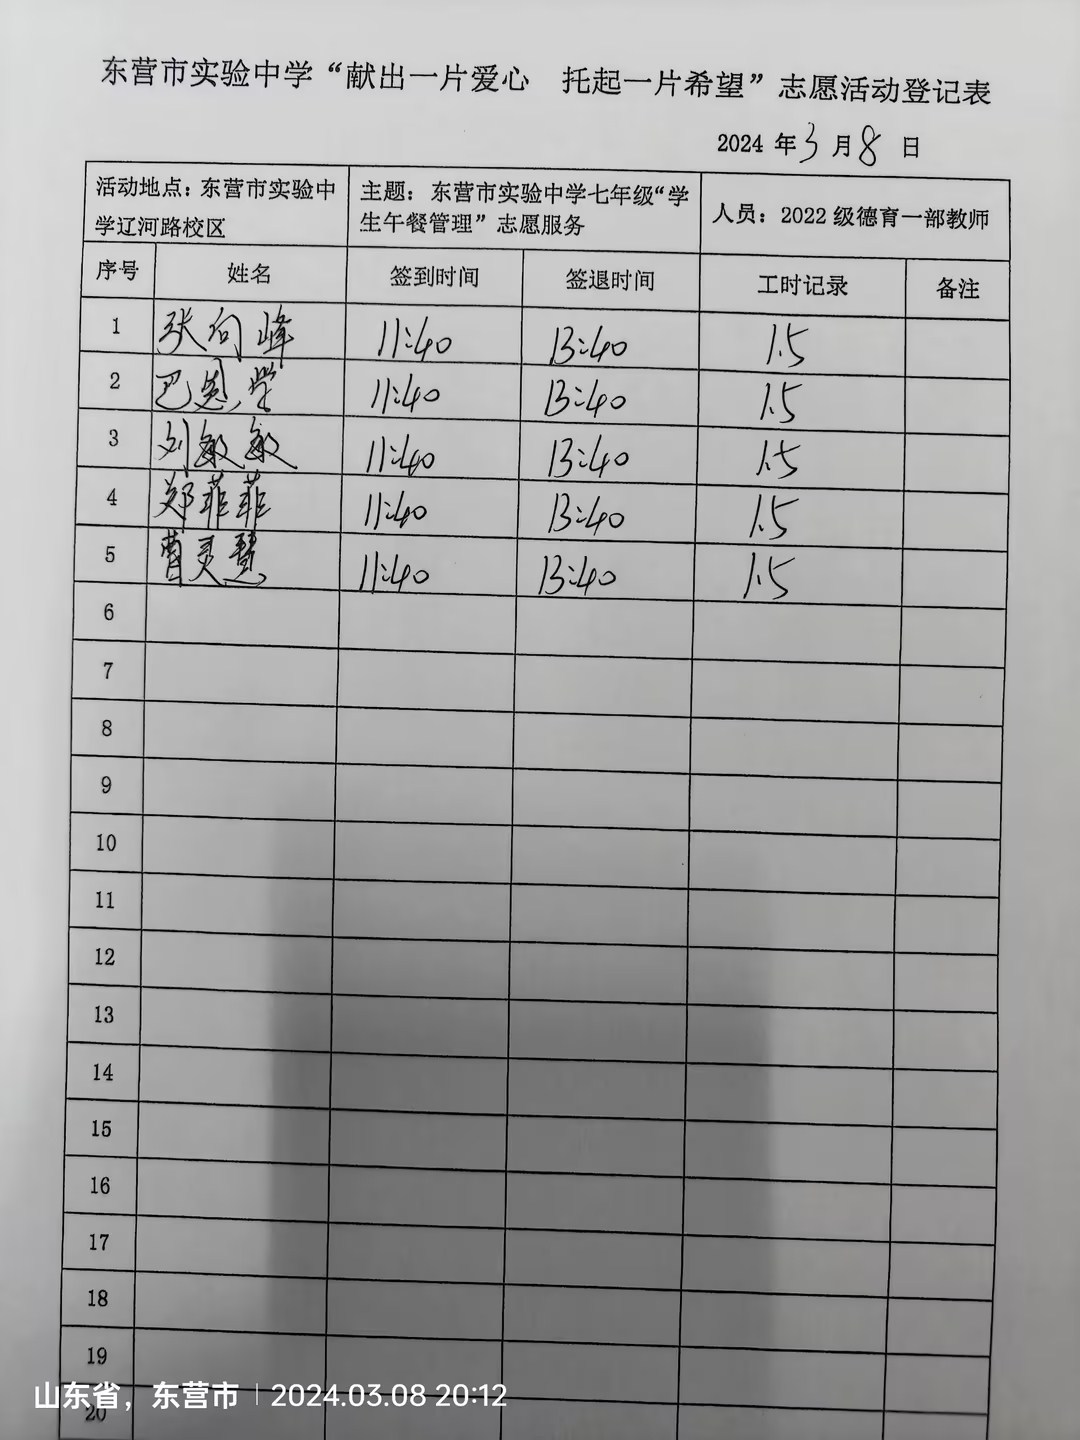 东营市实验中学“献出一片爱心 托起一片希望”志愿活动登记表
2024 年 3 月 8 日
活动地点：东营市实验中学辽河路校区 主题：东营市实验中学七年级“学生午餐管理”志愿服务 人员：2022 级德育一部教师
序号 姓名 签到时间 签退时间 工时记录 备注
1 张向峰 11:40 13:40 1.5
2 巴恩堂 11:40 13:40 1.5
3 刘敏敏 11:40 13:40 1.5
4 郑菲菲 11:40 13:40 1.5
5 曹灵慧 11:40 13:40 1.5
6
7
8
9
10
11
12
13
14
15
16
17
18
19
20
山东省，东营市 | 2024.03.08 20:12